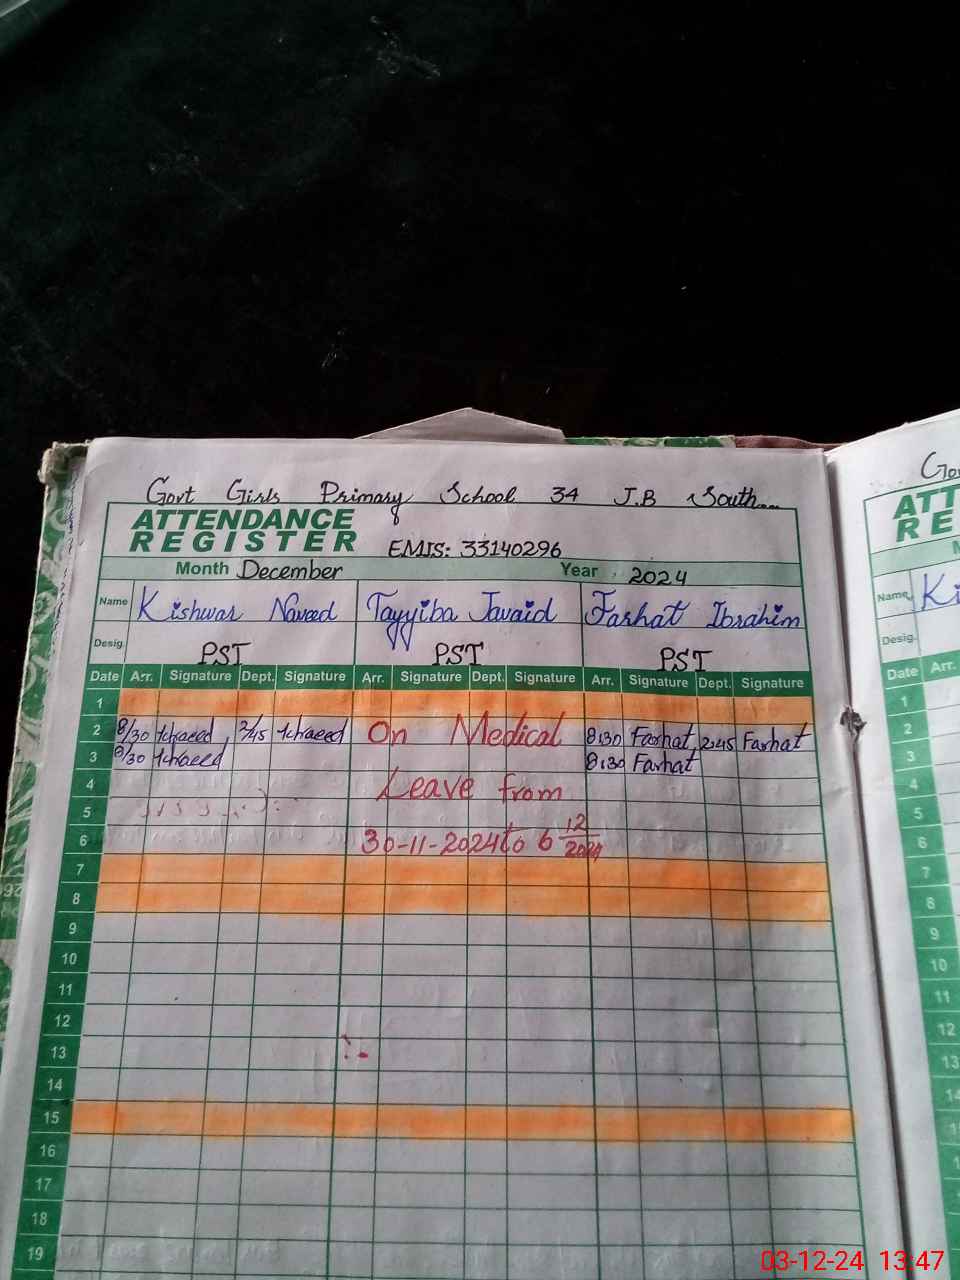 Govt Girls Primary School 34 J.B South
ATTENDANCE
REGISTER EMIS: 33140296
Month December Year 2024
Name Kishwar Naveed Tayyiba Javaid Farhat Ibrahim
Desig. PST PST PST
Date Arr. Signature Dept. Signature Arr. Signature Dept. Signature Arr. Signature Dept. Signature
1
2 8/30 2/45 On Medical 8:30 Farhat 2:45 Farhat
3 8/30 8:30 Farhat
4 Leave from
5
6 30-11-2024 to 6 12/2024
7
8
9
10
11
12
13
14
15
16
17
18
19
Gov
ATT
RE
Name Ki
Desig.
Date Arr.
1
2
3
4
5
6
7
8
9
10
11
12
13
03-12-24 13:47